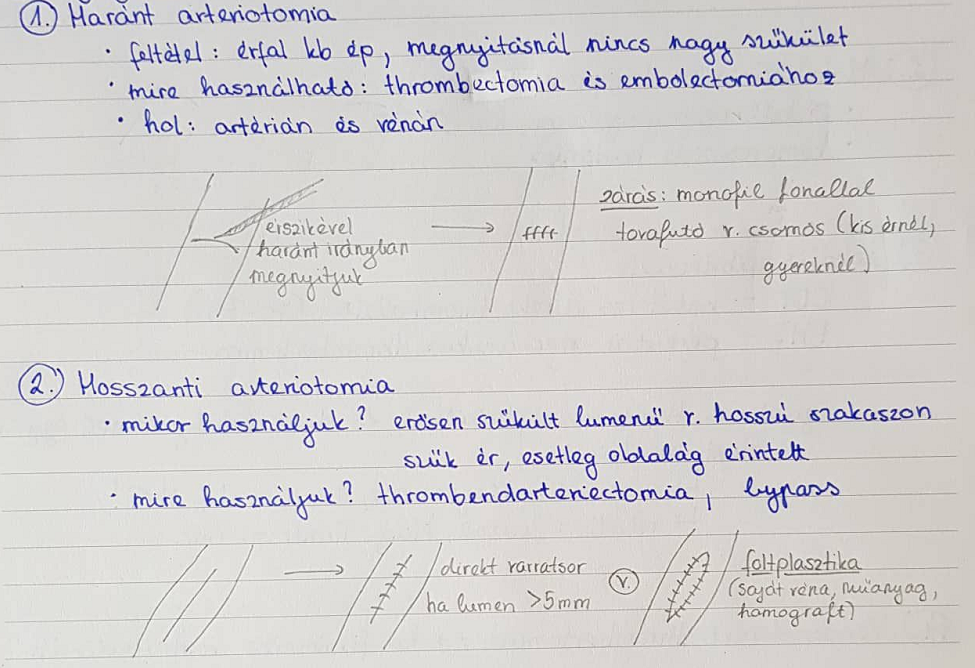 1. Haránt arteriotomia
• feltétel: érfal kb ép, megnyitásnál nincs nagy szűkület
• mire használható: thrombectomia és embolectomiához
• hol: artérián és vénán
érszikével
haránt irányban
megnyitjuk
zárás: monofil fonallal
tovafutó v. csomós (kis érnél,
gyereknél)
2. Hosszanti arteriotomia
• mikor használjuk? erősen szűkült lumenű v. hosszú szakaszon
szűk ér, esetleg oldalág érintett
• mire használjuk? thrombendarteriectomia, bypass
direkt varratsor
ha lumen >5mm
v.
foltplasztika
(saját véna, műanyag,
homograft)